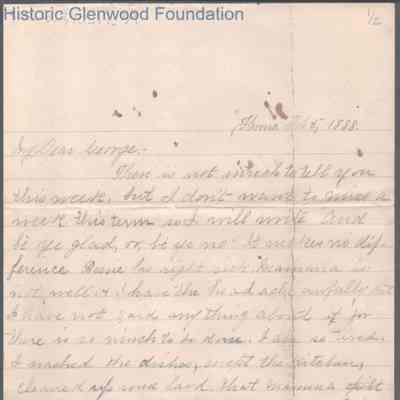 Historic Glenwood Foundation
1/2
Home Oct 5, 1888.
My Dear George:-
There is not much to tell you
this week, but I don't want to miss a
week this term so I will write "and
be ye glad, or, be ye no" It makes no dif-
ference Bessie is right sick Mamma is
not well & I have the head ache awfully but
I have not said anything about it for
there is so much to be done. I am so tired.
I washed the dishes, swept the kitchen,
cleaned up some lard that Mamma spilt